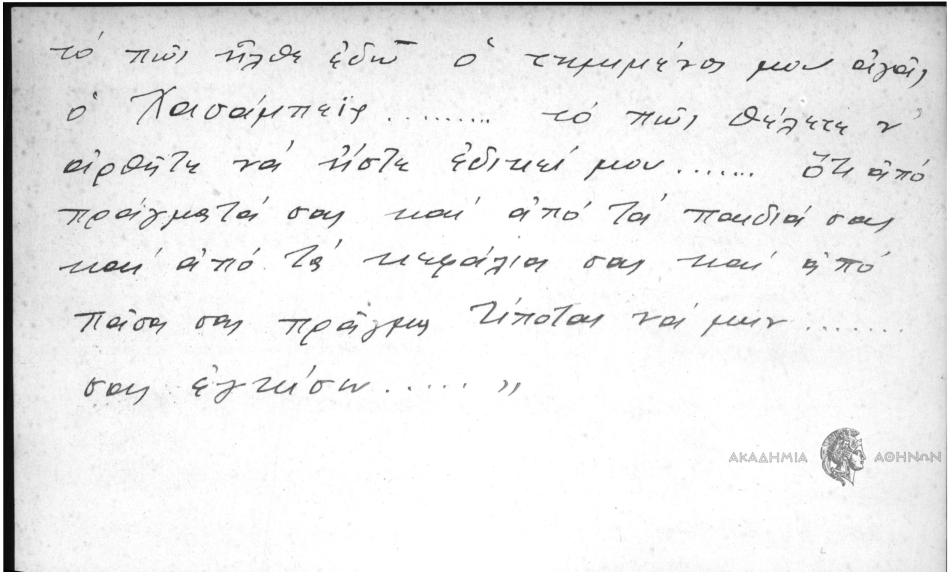 τό πῶς ἦλθε ἐδῶ ὁ τιμημένος μου ἀγᾶς
ὁ Χασάμπεϊς ......... τό πῶς θέλετε ν'
αἰρθῆτε νά ἦστε ἐδικοί μου ....... ὅτι ἀπό
πράγματά σας καί ἀπό τά παιδιά σας
καί ἀπό τά κεφάλια σας καί ἀπό
πᾶσα σας πρᾶγμα τίποτας νά μήν .......
σας ἐγγίσω ..... "
ΑΚΑΔΗΜΙΑ ΑΘΗΝΩΝ